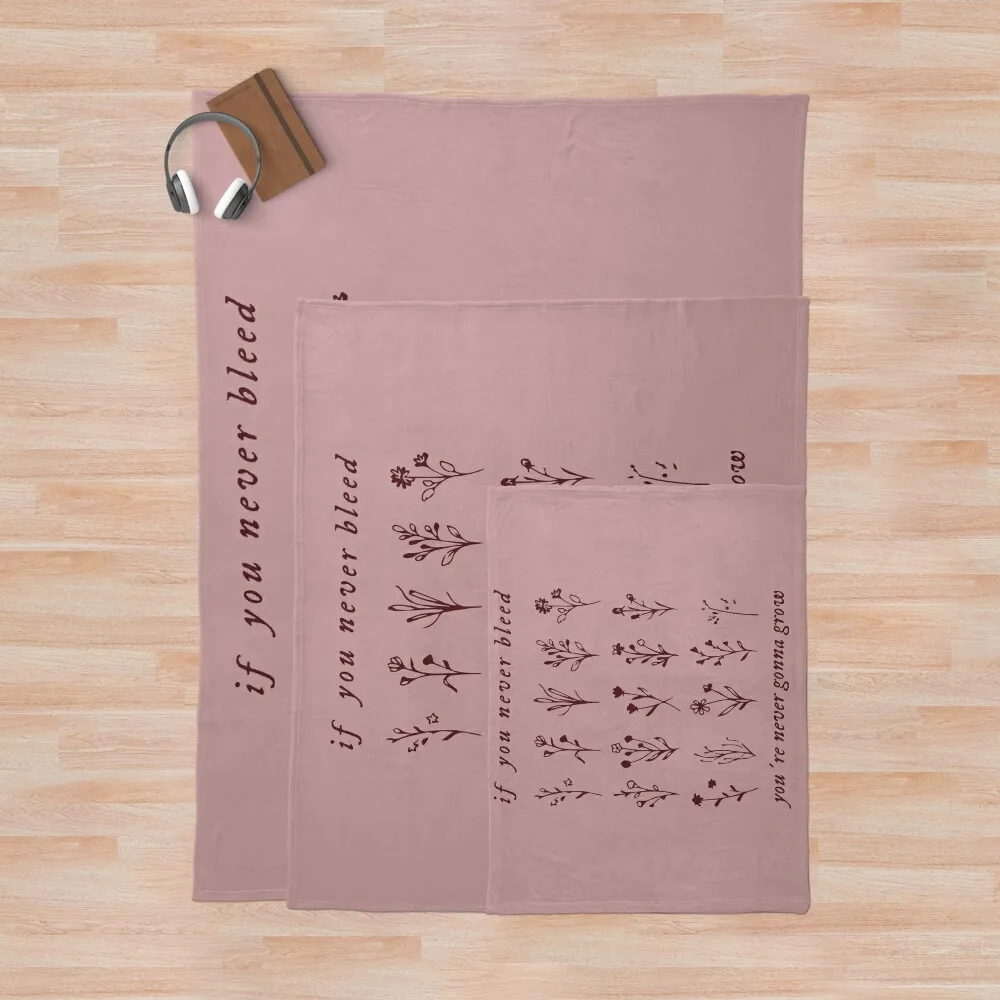 if you never bleed
if you never bleed
ow
if you never bleed
you're never gonna grow